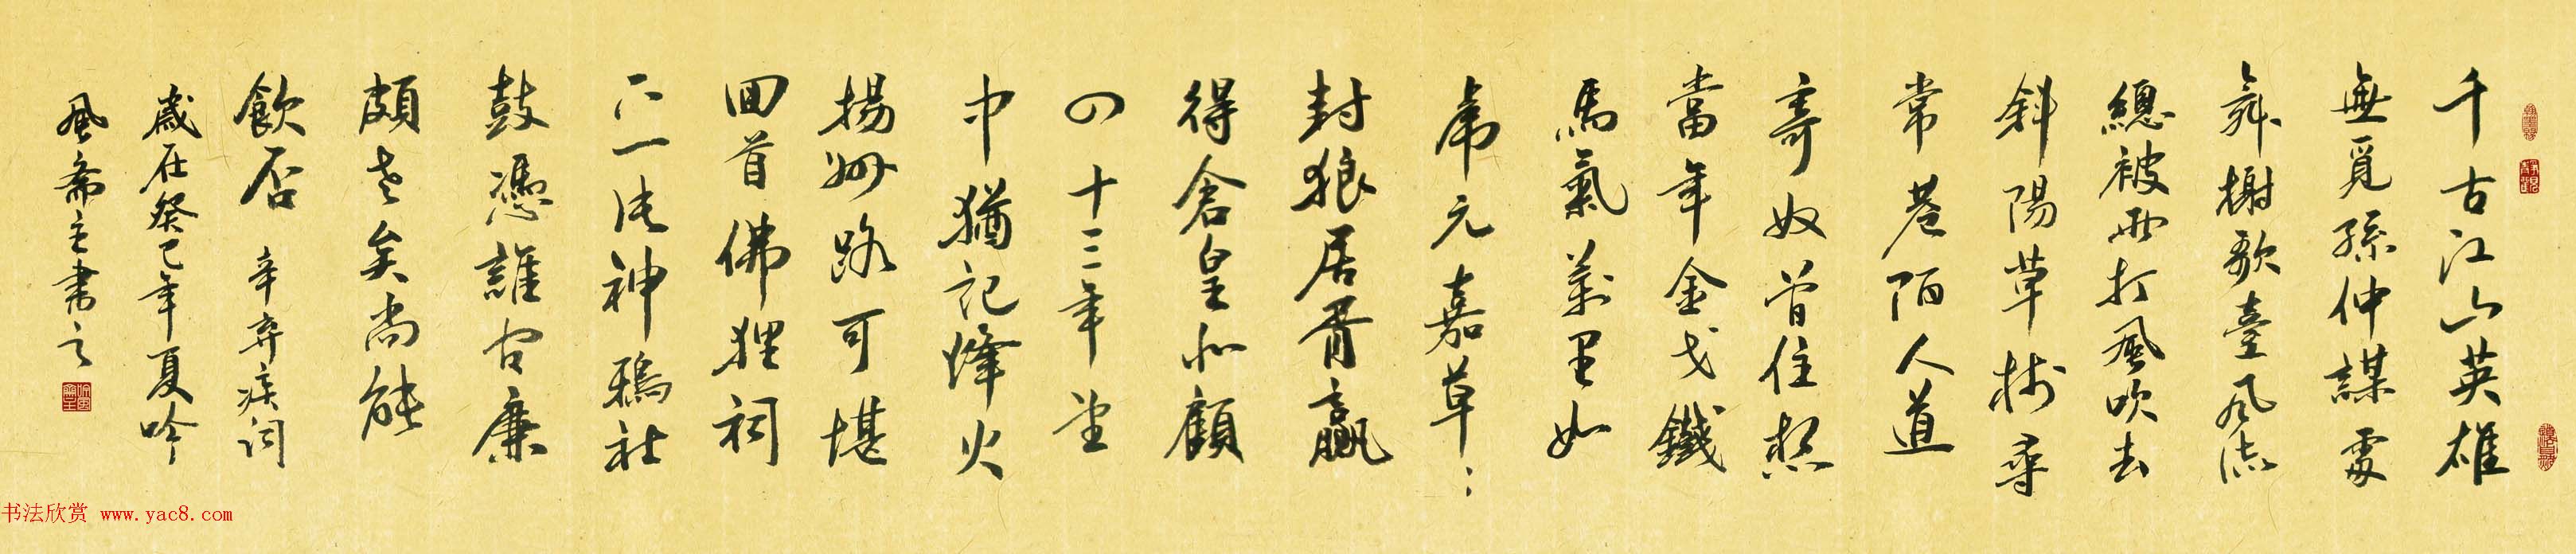 千古江山英雄
無覓孫仲謀處
舞榭歌臺風流
總被雨打風吹去
斜陽草樹尋
常巷陌人道
寄奴曾住想
當年金戈鐵
馬氣萬里如
虎元嘉草〻
封狼居胥贏
得倉皇北顧
四十三年望
中猶記烽火
揚州路可堪
回首佛狸祠
下一片神鴉社
鼓憑誰問廉
頗老矣尚能
飲否 辛弃疾詞
歲在癸巳年夏吟
風齋主書之
书法欣赏 www.yac8.com